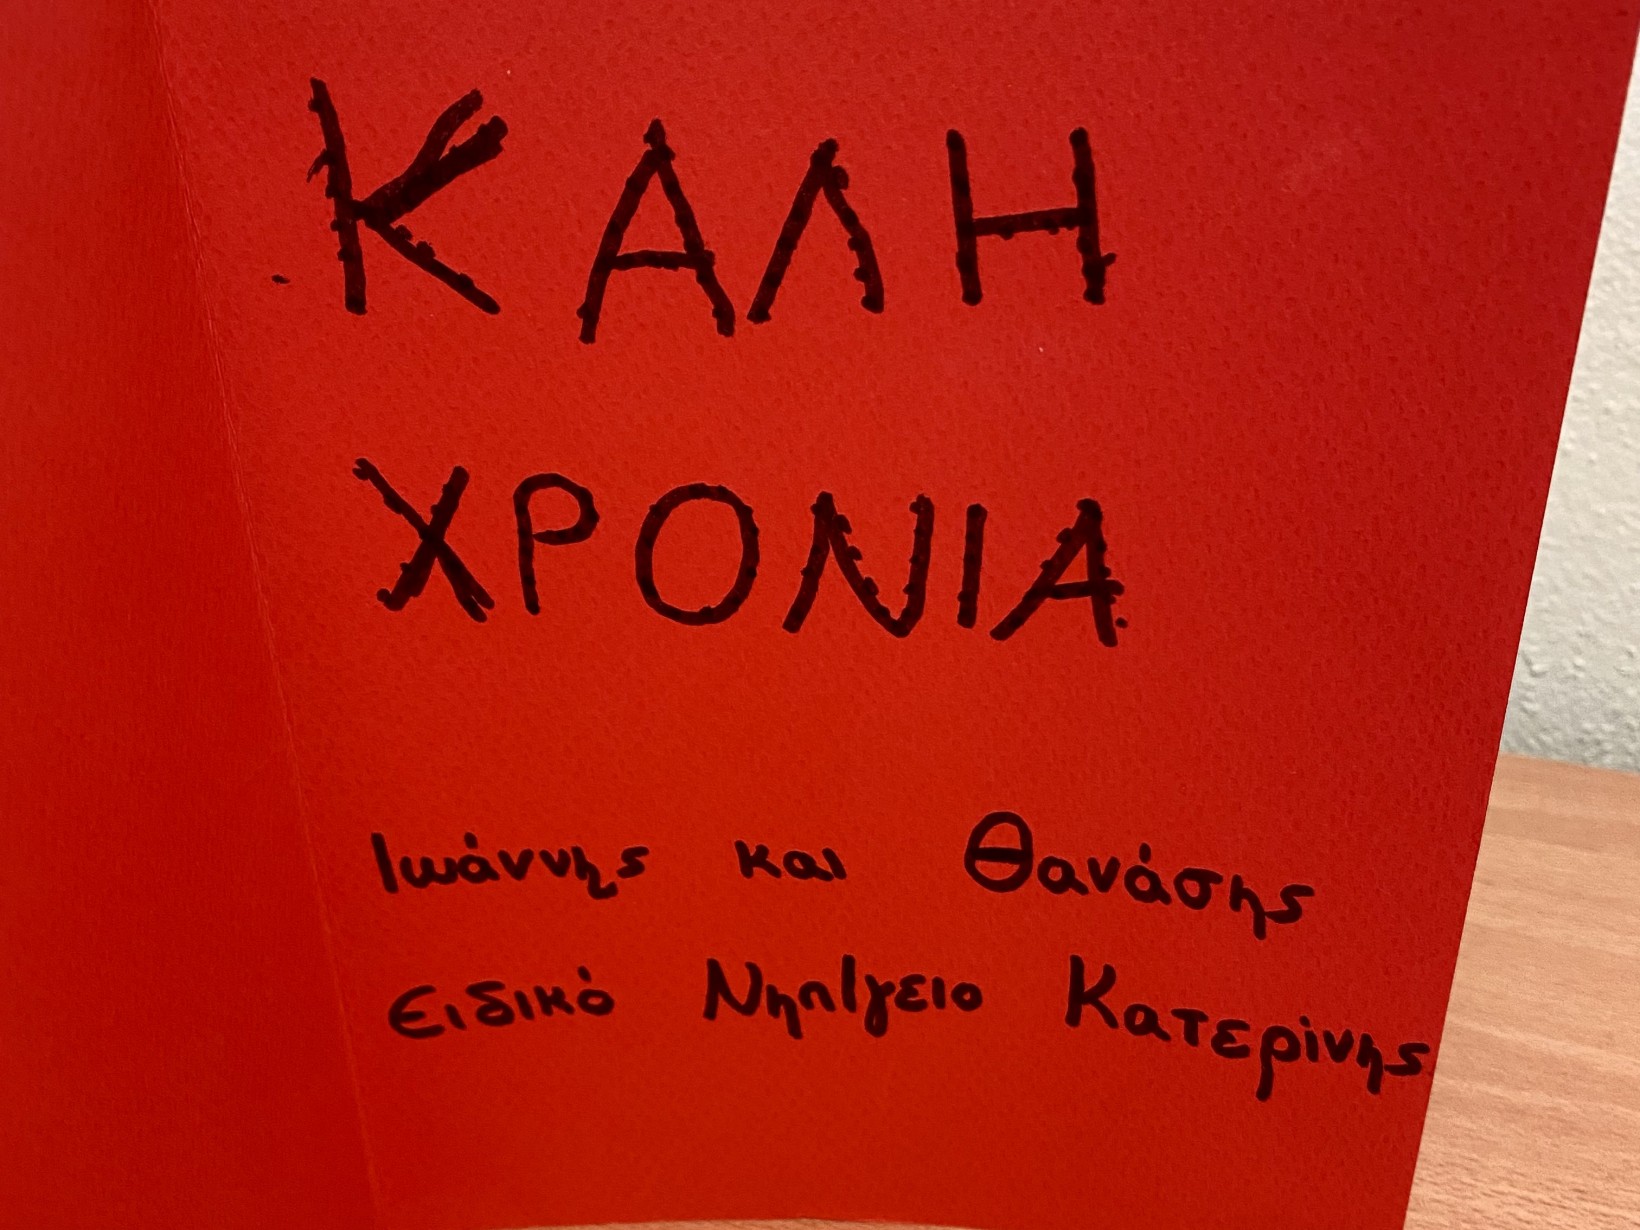 ΚΑΛΗ
ΧΡΟΝΙΑ
Ιωάννης και Θανάσης
Ειδικό Νηπ/γειο Κατερίνης